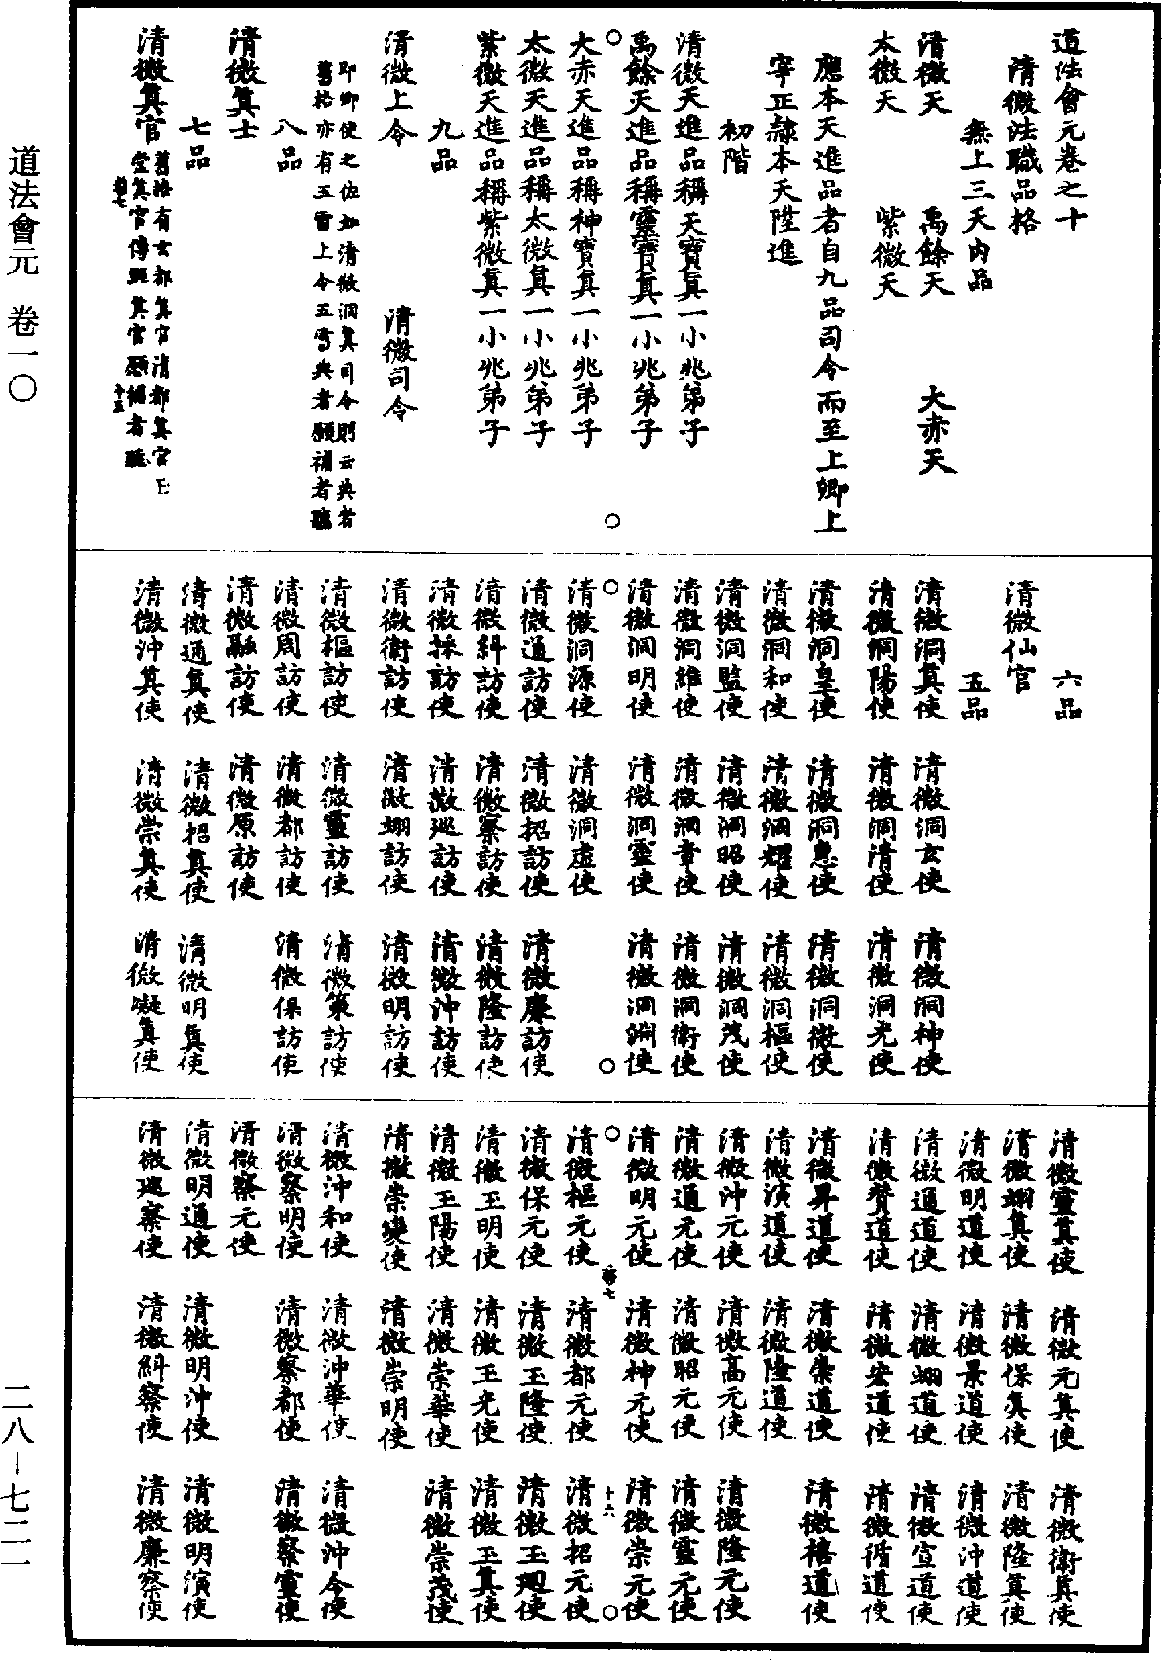 道法會元卷之十
清微法職品格
無上三天內品
清微天 禹餘天 大赤天
太微天 紫微天
應本天進品者自九品司令而至上卿上
宰正隸本天陞進
初階
清微天進品稱天寶真一小兆弟子
禹餘天進品稱靈寶真一小兆弟子
大赤天進品稱神寶真一小兆弟子
太微天進品稱太微真一小兆弟子
紫微天進品稱紫微真一小兆弟子
九品
清微上令 清微司令
即卿使之佐如清微洞真司令則云典者
舊格亦有五雷上令五雷典者願補者聽
八品
清微真士
七品
清微真官
舊格有玄都真官清都真官玉
堂真官傳 真官願補者聽
六品
清微仙官
五品
清微洞真使 清微洞玄使 清微洞神使
清微洞陽使 清微洞清使 清微洞光使
清微洞皇使 清微洞惠使 清微洞微使
清微洞和使 清微洞耀使 清微洞樞使
清微洞監使 清微洞昭使 清微洞茂使
清微洞維使 清微洞章使 清微洞衛使
清微洞明使 清微洞靈使 清微洞淵使
清微洞源使 清微洞虛使
清微通訪使 清微招訪使 清微廉訪使
清微糾訪使 清微察訪使 清微隆訪使
清微採訪使 清微巡訪使 清微沖訪使
清微衛訪使 清微翊訪使 清微明訪使
清微樞訪使 清微靈訪使 清微策訪使
清微周訪使 清微都訪使 清微保訪使
清微融訪使 清微原訪使
清微通真使 清微招真使 清微明真使
清微沖真使 清微崇真使 清微凝真使
清微靈真使 清微元真使 清微衛真使
清微翊真使 清微保真使 清微隆真使
清微明道使 清微景道使 清微沖道使
清微通道使 清微翊道使 清微宣道使
清微贊道使 清微宏道使 清微循道使
清微昇道使 清微崇道使 清微禧道使
清微演道使 清微隆道使
清微沖元使 清微高元使 清微隆元使
清微通元使 清微昭元使 清微靈元使
清微明元使 清微神元使 清微崇元使
清微樞元使 清微都元使 清微招元使
清微保元使 清微玉隆使 清微玉理使
清微玉明使 清微玉光使 清微玉真使
清微玉陽使 清微崇華使 清微崇茂使
清微崇變使 清微崇明使
清微沖和使 清微沖華使 清微沖令使
清微察明使 清微察都使 清微察靈使
清微察元使
清微明通使 清微明沖使 清微明演使
清微巡察使 清微糾察使 清微廉察使
道法會元 卷一〇
二八—七二一